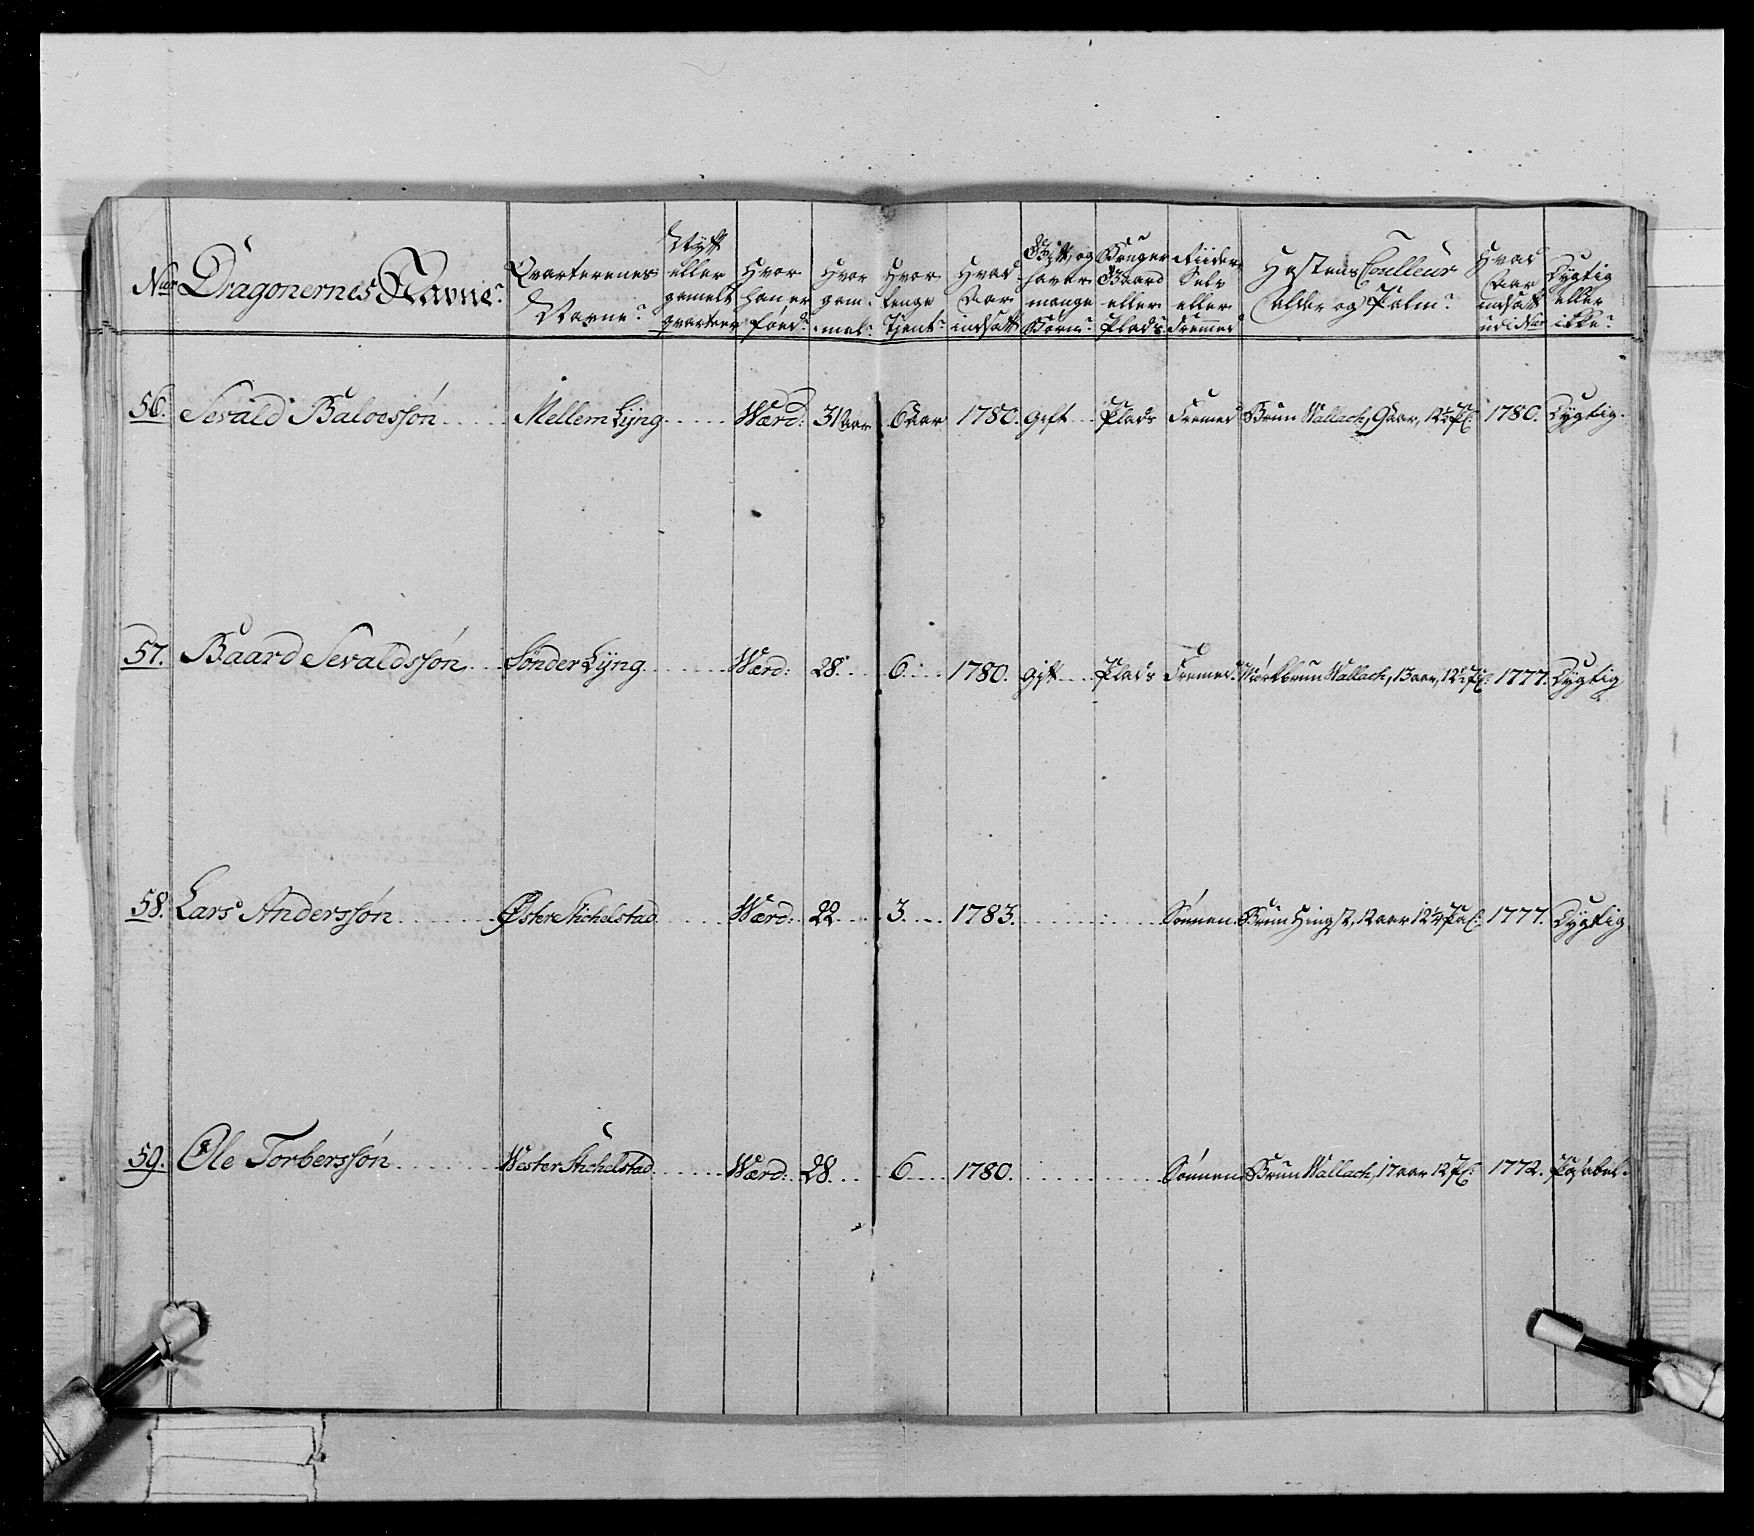 Nur Dragonernes Navne? Qvarterenes Navne? Nytt eller gamelt qvarteer Hvor han er föed? Hvor gam-mel? Hvor lenge Tjent? Hvad Aar indsatt Gift, og haver mange Börn? Bruger Gaard eller Plads Riider Selv eller Fremed Hæstens Coulleur alder og Palm? Hvad Aar indsatt udi Nur Dygtig eller ikke?
56. Sevald Baloessøn Mellem Lÿng Værd: 31 Aar 6 Aar 1780. gift Plads Fremed Brun Vallach, 9 aar, 12½ Pl: 1780. Dygtig.
57. Baard Sevaldssøn Sønder Lÿng Værd: 28. 6. 1780. gift Plads Fremed Mørkbrun Vallach, 13 aar, 12½ Pl: 1777. Dygtig
58. Lars Anderssøn Øster Stichelstad Værd: 22 3. 1783. Sönnen Brun Hingst, 12 aar 12¼ Pal: 1777. Dygtig
59. Ole Torberssøn Wester Stichelstad Værd: 28. 6 1780. Sönnen Brun Vallach, 17 aar 12 Pl: 1772. Pasabel.